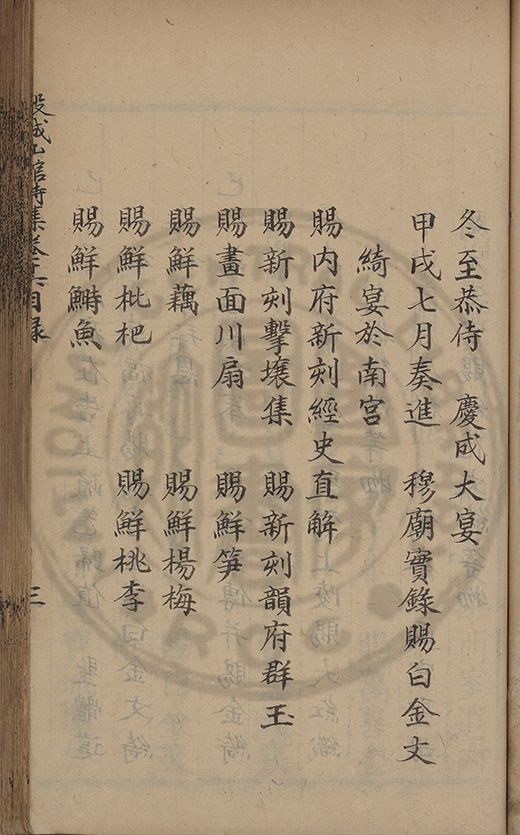 冬至恭侍　慶成大宴
甲戌七月奏進　穆廟實錄賜白金文
綺宴於南宮
賜內府新刻經史直解
賜新刻擊壤集　賜新刻韻府群玉
賜畫面川扇　賜鮮筍
賜鮮藕　賜鮮楊梅
賜鮮枇杷　賜鮮桃李
賜鮮鰣魚
城山館詩集卷十六目錄
三